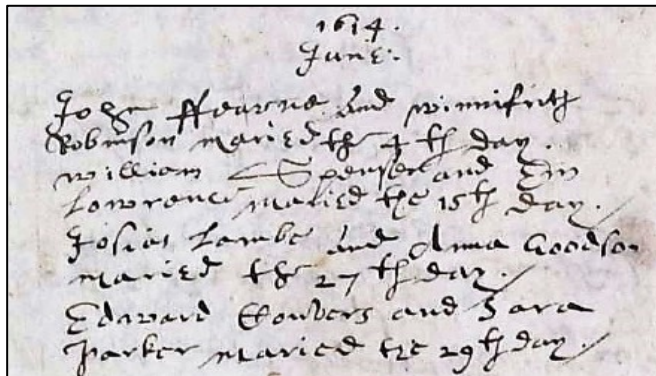 1614.
June:
John ffearne and winnifrith
Robinson maried the 4th day.
william Spenser and Em
Lowrence maried the 15th day /
Josias Lambe and Anna Goodson
maried the 27th day /
Edward and Sara
Parker maried the 29th day /